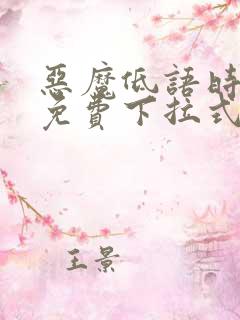 惡魔低語時
免費下拉式
王景